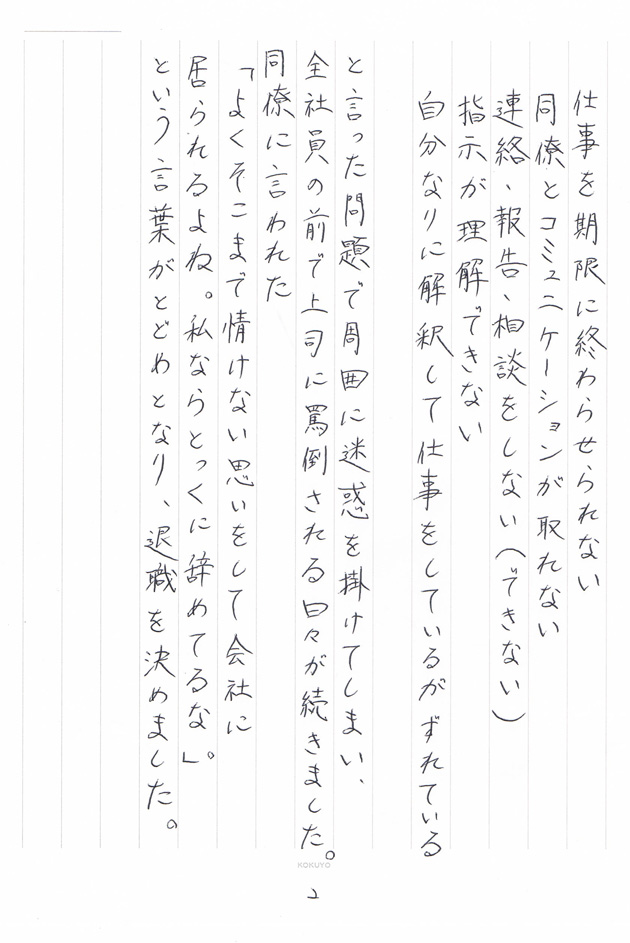 仕事を期限に終わらせられない
同僚とコミュニケーションが取れない
連絡、報告、相談をしない（できない）
指示が理解できない
自分なりに解釈して仕事をしているがずれている
と言った問題で周囲に迷惑を掛けてしまい、
全社員の前で上司に罵倒される日々が続きました。
同僚に言われた
「よくそこまで情けない思いをして会社に
居られるよね。私ならとっくに辞めてるな」。
という言葉がとどめとなり、退職を決めました。
KOKUYO
2